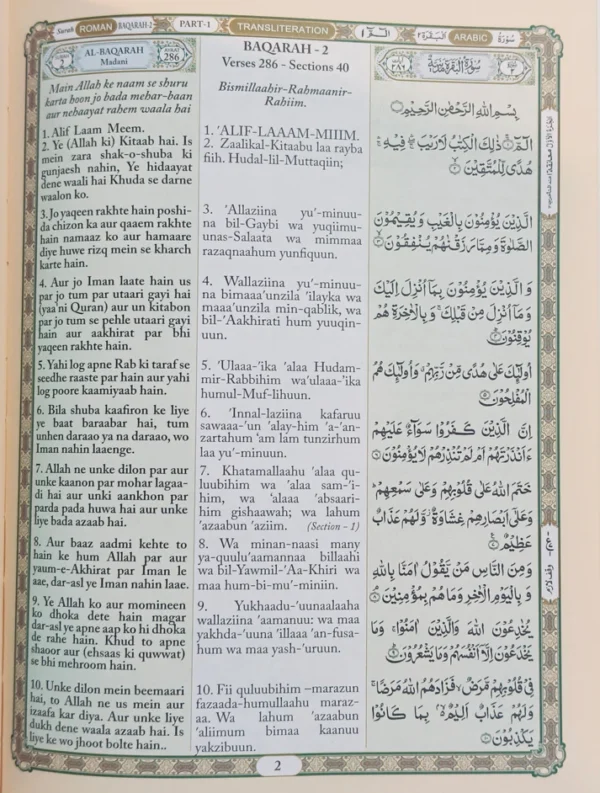 Surah ROMAN BAQARAH-2 PART-1 TRANSLITERATION الٓمّٓ ١ الْبَقَرَة ٢ ARABIC سُوْرَة
2
AL-BAQARAH
Madani
286
Main Allah ke naam se shuru
karta hoon jo bada mehar-baan
aur nehaayat rahem waala hai
1. Alif Laam Meem.
2. Ye (Allah ki) Kitaab hai. Is
mein zara shak-o-shuba ki
gunjaesh nahin, Ye hidaayat
dene waali hai Khuda se darne
waalon ko.
3. Jo yaqeen rakhte hain poshi-
da chizon ka aur qaaem rakhte
hain namaaz ko aur hamaare
diye huwe rizq mein se kharch
karte hain.
4. Aur jo Iman laate hain us
par jo tum par utaari gayi hai
(yaa'ni Quran) aur un kitabon
par jo tum se pehle utaari gayi
hain aur aakhirat par bhi
yaqeen rakhte hain.
5. Yahi log apne Rab ki taraf se
seedhe raaste par hain aur yahi
log poore kaamiyaab hain.
6. Bila shuba kaafiron ke liye
ye baat baraabar hai, tum
unhen daraao ya na daraao, wo
Iman nahin laaenge.
7. Allah ne unke dilon par aur
unke kaanon par mohar lagaa-
di hai aur unki aankhon par
parda pada huwa hai aur unke
liye bada azaab hai.
8. Aur baaz aadmi kehte to
hain ke hum Allah par aur
yaum-e-Akhirat par Iman le
aae, dar-asl ye Iman nahin laae.
9. Ye Allah ko aur momineen
ko dhoka dete hain magar
dar-asl ye apne aap ko hi dhoka
de rahe hain. Khud to apne
shaoor aur (ehsaas ki quwwat)
se bhi mehroom hain.
10. Unke dilon mein beemaari
hai, to Allah ne us mein aur
izaafa kar diya. Aur unke liye
dukh dene waala azaab hai. Is
liye ke wo jhoot bolte hain..
BAQARAH - 2
Verses 286 - Sections 40
Bismillaahir-Rahmaanir-
Rahiim.
1. 'ALIF-LAAAM-MIIIM.
2. Zaalikal-Kitaabu laa rayba
fiih. Hudal-lil-Muttaqiin;
3. 'Allaziina yu'-minuu-
na bil-Gaybi wa yuqiimu-
unas-Salaata wa mimmaa
razaqnaahum yunfiquun.
4. Wallaziina yu'-minuu-
na bimaaa'unzila 'ilayka wa
maaa'unzila min-qablik, wa
bil-'Aakhirati hum yuuqin-
uun.
5. 'Ulaaa-'ika 'alaa Hudam-
mir-Rabbihim wa'ulaaa-'ika
humul-Muf-lihuun.
6. 'Innal-laziina kafaruu
sawaaa-'un 'alay-him 'a-'an-
zartahum 'am lam tunzirhum
laa yu'-minuun.
7. Khatamallaahu 'alaa qu-
luubihim wa 'alaa sam-'i-
him, wa 'alaaa 'absaari-
him gishaawah; wa lahum
'azaabun 'aziim. (Section - 1)
8. Wa minan-naasi many
ya-quulu'aamannaa billaahi
wa bil-Yawmil-'Aa-Khiri wa
maa hum-bi-mu'-miniin.
9. Yukhaadu-'uunaalaaha
wallaziina 'aamanuu: wa maa
yakhda-'uuna 'illaaa 'an-fusa-
hum wa maa yash-'uruun.
10. Fii quluubihim –marazun
fazaada-humullaahu maraz-
aa. Wa lahum 'azaabun
'aliimum bimaa kaanuu
yakzibuun.
بِسْمِ اللّٰهِ الرَّحْمٰنِ الرَّحِيْمِ
الٓمّٓ ۚ ذٰلِكَ الْكِتٰبُ لَا رَيْبَ ۛ فِيْهِ ۛ
هُدًى لِّلْمُتَّقِيْنَ ۙ ٢
الَّذِيْنَ يُؤْمِنُوْنَ بِالْغَيْبِ وَ يُقِيْمُوْنَ
الصَّلٰوةَ وَ مِمَّا رَزَقْنٰهُمْ يُنْفِقُوْنَ ٣
وَ الَّذِيْنَ يُؤْمِنُوْنَ بِمَآ اُنْزِلَ اِلَيْكَ
وَ مَآ اُنْزِلَ مِنْ قَبْلِكَ ۚ وَ بِالْاٰخِرَةِ هُمْ
يُوْقِنُوْنَ ٤
اُولٰٓئِكَ عَلٰى هُدًى مِّنْ رَّبِّهِمْ ۗ وَ اُولٰٓئِكَ هُمُ
الْمُفْلِحُوْنَ ٥
اِنَّ الَّذِيْنَ كَفَرُوْا سَوَآءٌ عَلَيْهِمْ
ءَاَنْذَرْتَهُمْ اَمْ لَمْ تُنْذِرْهُمْ لَا يُؤْمِنُوْنَ ٦
خَتَمَ اللّٰهُ عَلٰى قُلُوْبِهِمْ وَ عَلٰى سَمْعِهِمْ ۗ
وَ عَلٰٓى اَبْصَارِهِمْ غِشَاوَةٌ ۖ وَّ لَهُمْ عَذَابٌ
عَظِيْمٌ ٧
وَ مِنَ النَّاسِ مَنْ يَّقُوْلُ اٰمَنَّا بِاللّٰهِ
وَ بِالْيَوْمِ الْاٰخِرِ وَ مَا هُمْ بِمُؤْمِنِيْنَ ٨
يُخٰدِعُوْنَ اللّٰهَ وَ الَّذِيْنَ اٰمَنُوْا ۚ وَ مَا
يَخْدَعُوْنَ اِلَّآ اَنْفُسَهُمْ وَ مَا يَشْعُرُوْنَ ٩
فِيْ قُلُوْبِهِمْ مَّرَضٌ ۙ فَزَادَهُمُ اللّٰهُ مَرَضًا ۚ
وَ لَهُمْ عَذَابٌ اَلِيْمٌۢ ۙ بِمَا كَانُوْا
يَكْذِبُوْنَ ١٠
2